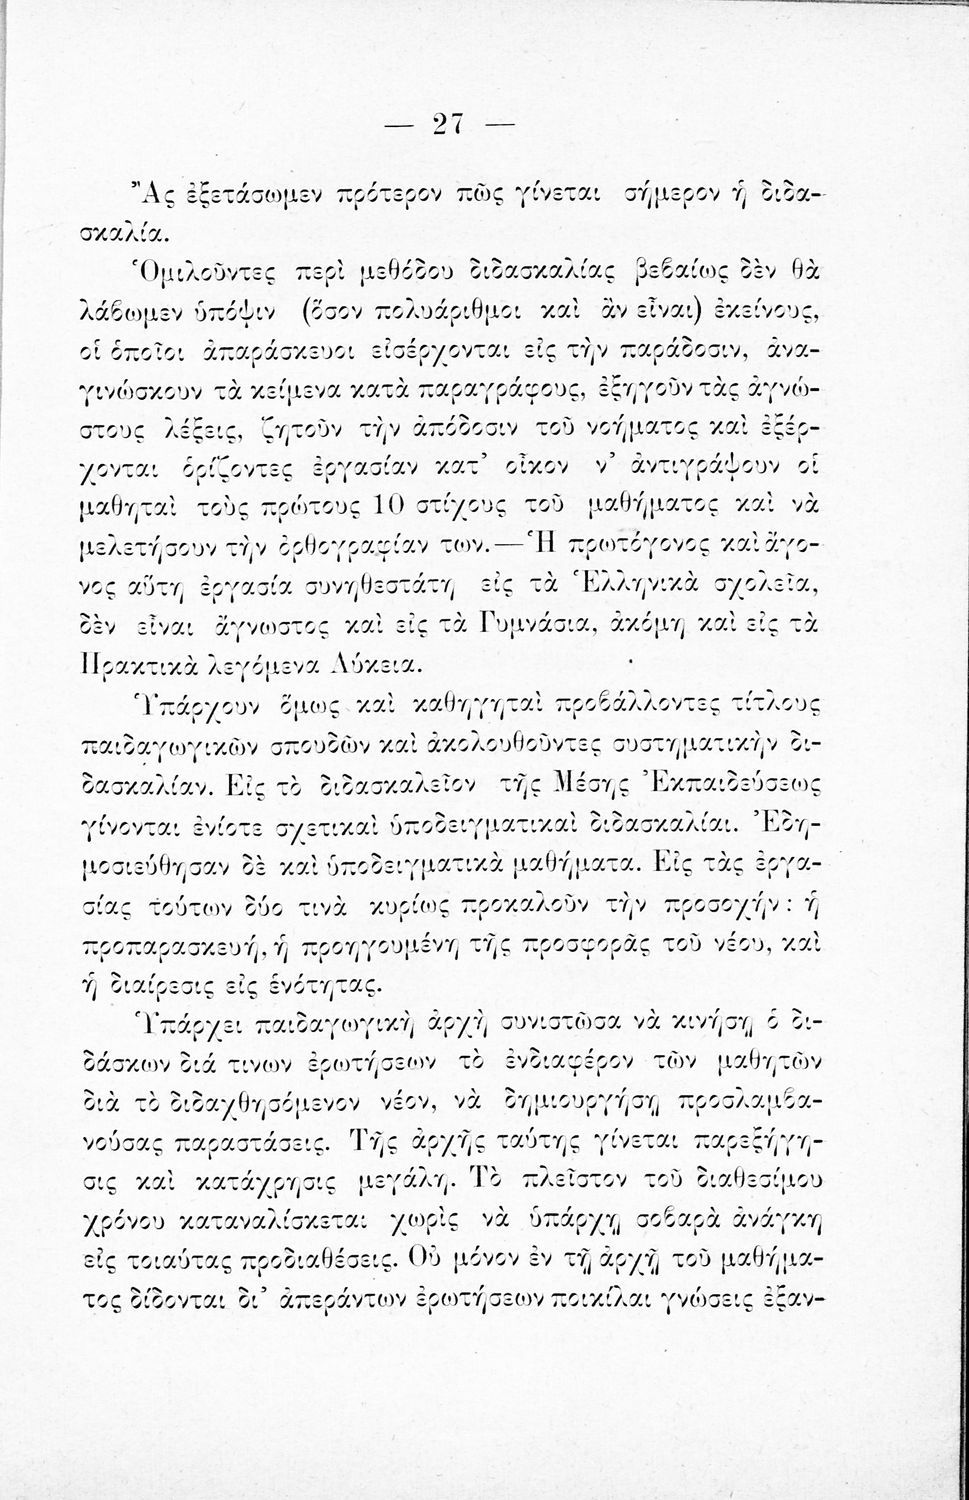 — 27 —
Ἂς ἐξετάσωμεν πρότερον πῶς γίνεται σήμερον ἡ διδα-
σκαλία.
Ὁμιλοῦντες περὶ μεθόδου διδασκαλίας βεβαίως δὲν θὰ
λάβωμεν ὑπόψιν (ὅσον πολυάριθμοι καὶ ἂν εἶναι) ἐκείνους,
οἱ ὁποῖοι ἀπαράσκευοι εἰσέρχονται εἰς τὴν παράδοσιν, ἀνα-
γινώσκουν τὰ κείμενα κατὰ παραγράφους, ἐξηγοῦν τὰς ἀγνώ-
στους λέξεις, ζητοῦν τὴν ἀπόδοσιν τοῦ νοήματος καὶ ἐξέρ-
χονται ὁρίζοντες ἐργασίαν κατ’ οἶκον ν’ ἀντιγράψουν οἱ
μαθηταὶ τοὺς πρώτους 10 στίχους τοῦ μαθήματος καὶ νὰ
μελετήσουν τὴν ὀρθογραφίαν των.—Ἡ πρωτόγονος καὶ ἄγο-
νος αὕτη ἐργασία συνηθεστάτη εἰς τὰ Ἑλληνικὰ σχολεῖα,
δὲν εἶναι ἄγνωστος καὶ εἰς τὰ Γυμνάσια, ἀκόμη καὶ εἰς τὰ
Πρακτικὰ λεγόμενα Λύκεια.
Ὑπάρχουν ὅμως καὶ καθηγηταὶ προβάλλοντες τίτλους
παιδαγωγικῶν σπουδῶν καὶ ἀκολουθοῦντες συστηματικὴν δι-
δασκαλίαν. Εἰς τὸ διδασκαλεῖον τῆς Μέσης Ἐκπαιδεύσεως
γίνονται ἐνίοτε σχετικαὶ ὑποδειγματικαὶ διδασκαλίαι. Ἐδη-
μοσιεύθησαν δὲ καὶ ὑποδειγματικὰ μαθήματα. Εἰς τὰς ἐργα-
σίας τούτων δύο τινὰ κυρίως προκαλοῦν τὴν προσοχήν: ἡ
προπαρασκευή, ἡ προηγουμένη τῆς προσφορᾶς τοῦ νέου, καὶ
ἡ διαίρεσις εἰς ἑνότητας.
Ὑπάρχει παιδαγωγικὴ ἀρχὴ συνιστῶσα νὰ κινήσῃ ὁ δι-
δάσκων διά τινων ἐρωτήσεων τὸ ἐνδιαφέρον τῶν μαθητῶν
διὰ τὸ διδαχθησόμενον νέον, νὰ δημιουργήσῃ προσλαμβα-
νούσας παραστάσεις. Τῆς ἀρχῆς ταύτης γίνεται παρεξήγη-
σις καὶ κατάχρησις μεγάλη. Τὸ πλεῖστον τοῦ διαθεσίμου
χρόνου καταναλίσκεται χωρὶς νὰ ὑπάρχῃ σοβαρὰ ἀνάγκη
εἰς τοιαύτας προδιαθέσεις. Οὐ μόνον ἐν τῇ ἀρχῇ τοῦ μαθήμα-
τος δίδονται δι’ ἀπεράντων ἐρωτήσεων ποικίλαι γνώσεις ἐξαν-